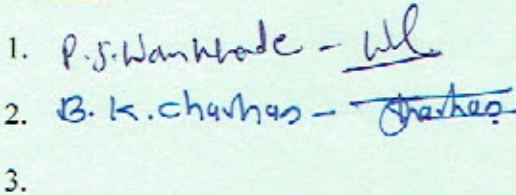 1. P.S. Wankhade -
2. B. K. Charhas - Charhas
3.